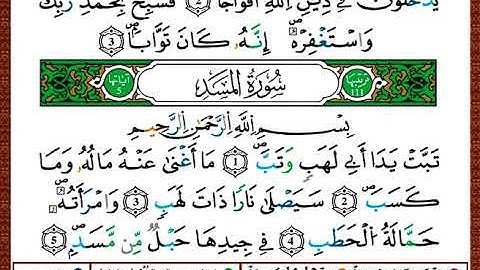 يَدْخُلُونَ فِي دِينِ اللَّهِ أَفْوَاجًا ۝2 فَسَبِّحْ بِحَمْدِ رَبِّكَ
وَاسْتَغْفِرْهُ إِنَّهُ كَانَ تَوَّابًا ۝3
ترتيبها 111 سُورَةُ المَسَدِ آياتها 5
بِسْمِ اللَّهِ الرَّحْمَٰنِ الرَّحِيمِ
تَبَّتْ يَدَا أَبِي لَهَبٍ وَتَبَّ ۝1 مَا أَغْنَىٰ عَنْهُ مَالُهُ وَمَا
كَسَبَ ۝2 سَيَصْلَىٰ نَارًا ذَاتَ لَهَبٍ ۝3 وَامْرَأَتُهُ
حَمَّالَةُ الْحَطَبِ ۝4 فِي جِيدِهَا حَبْلٌ مِّن مَّسَدٍ ۝5